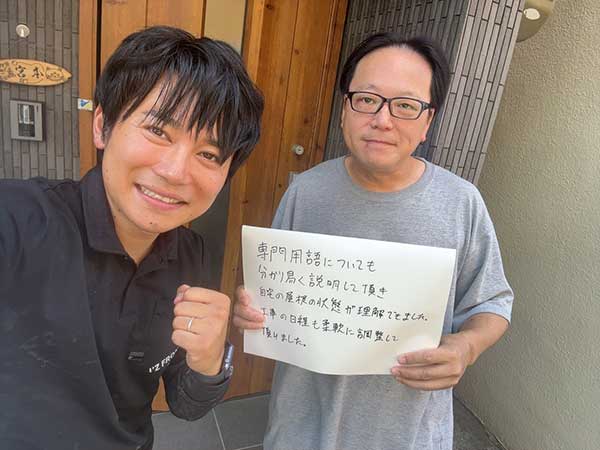 宮本
専門用語についても
分かり易く説明して頂き
自宅の屋根の状態が理解できました。
工事の日程も柔軟に調整して
頂けました。